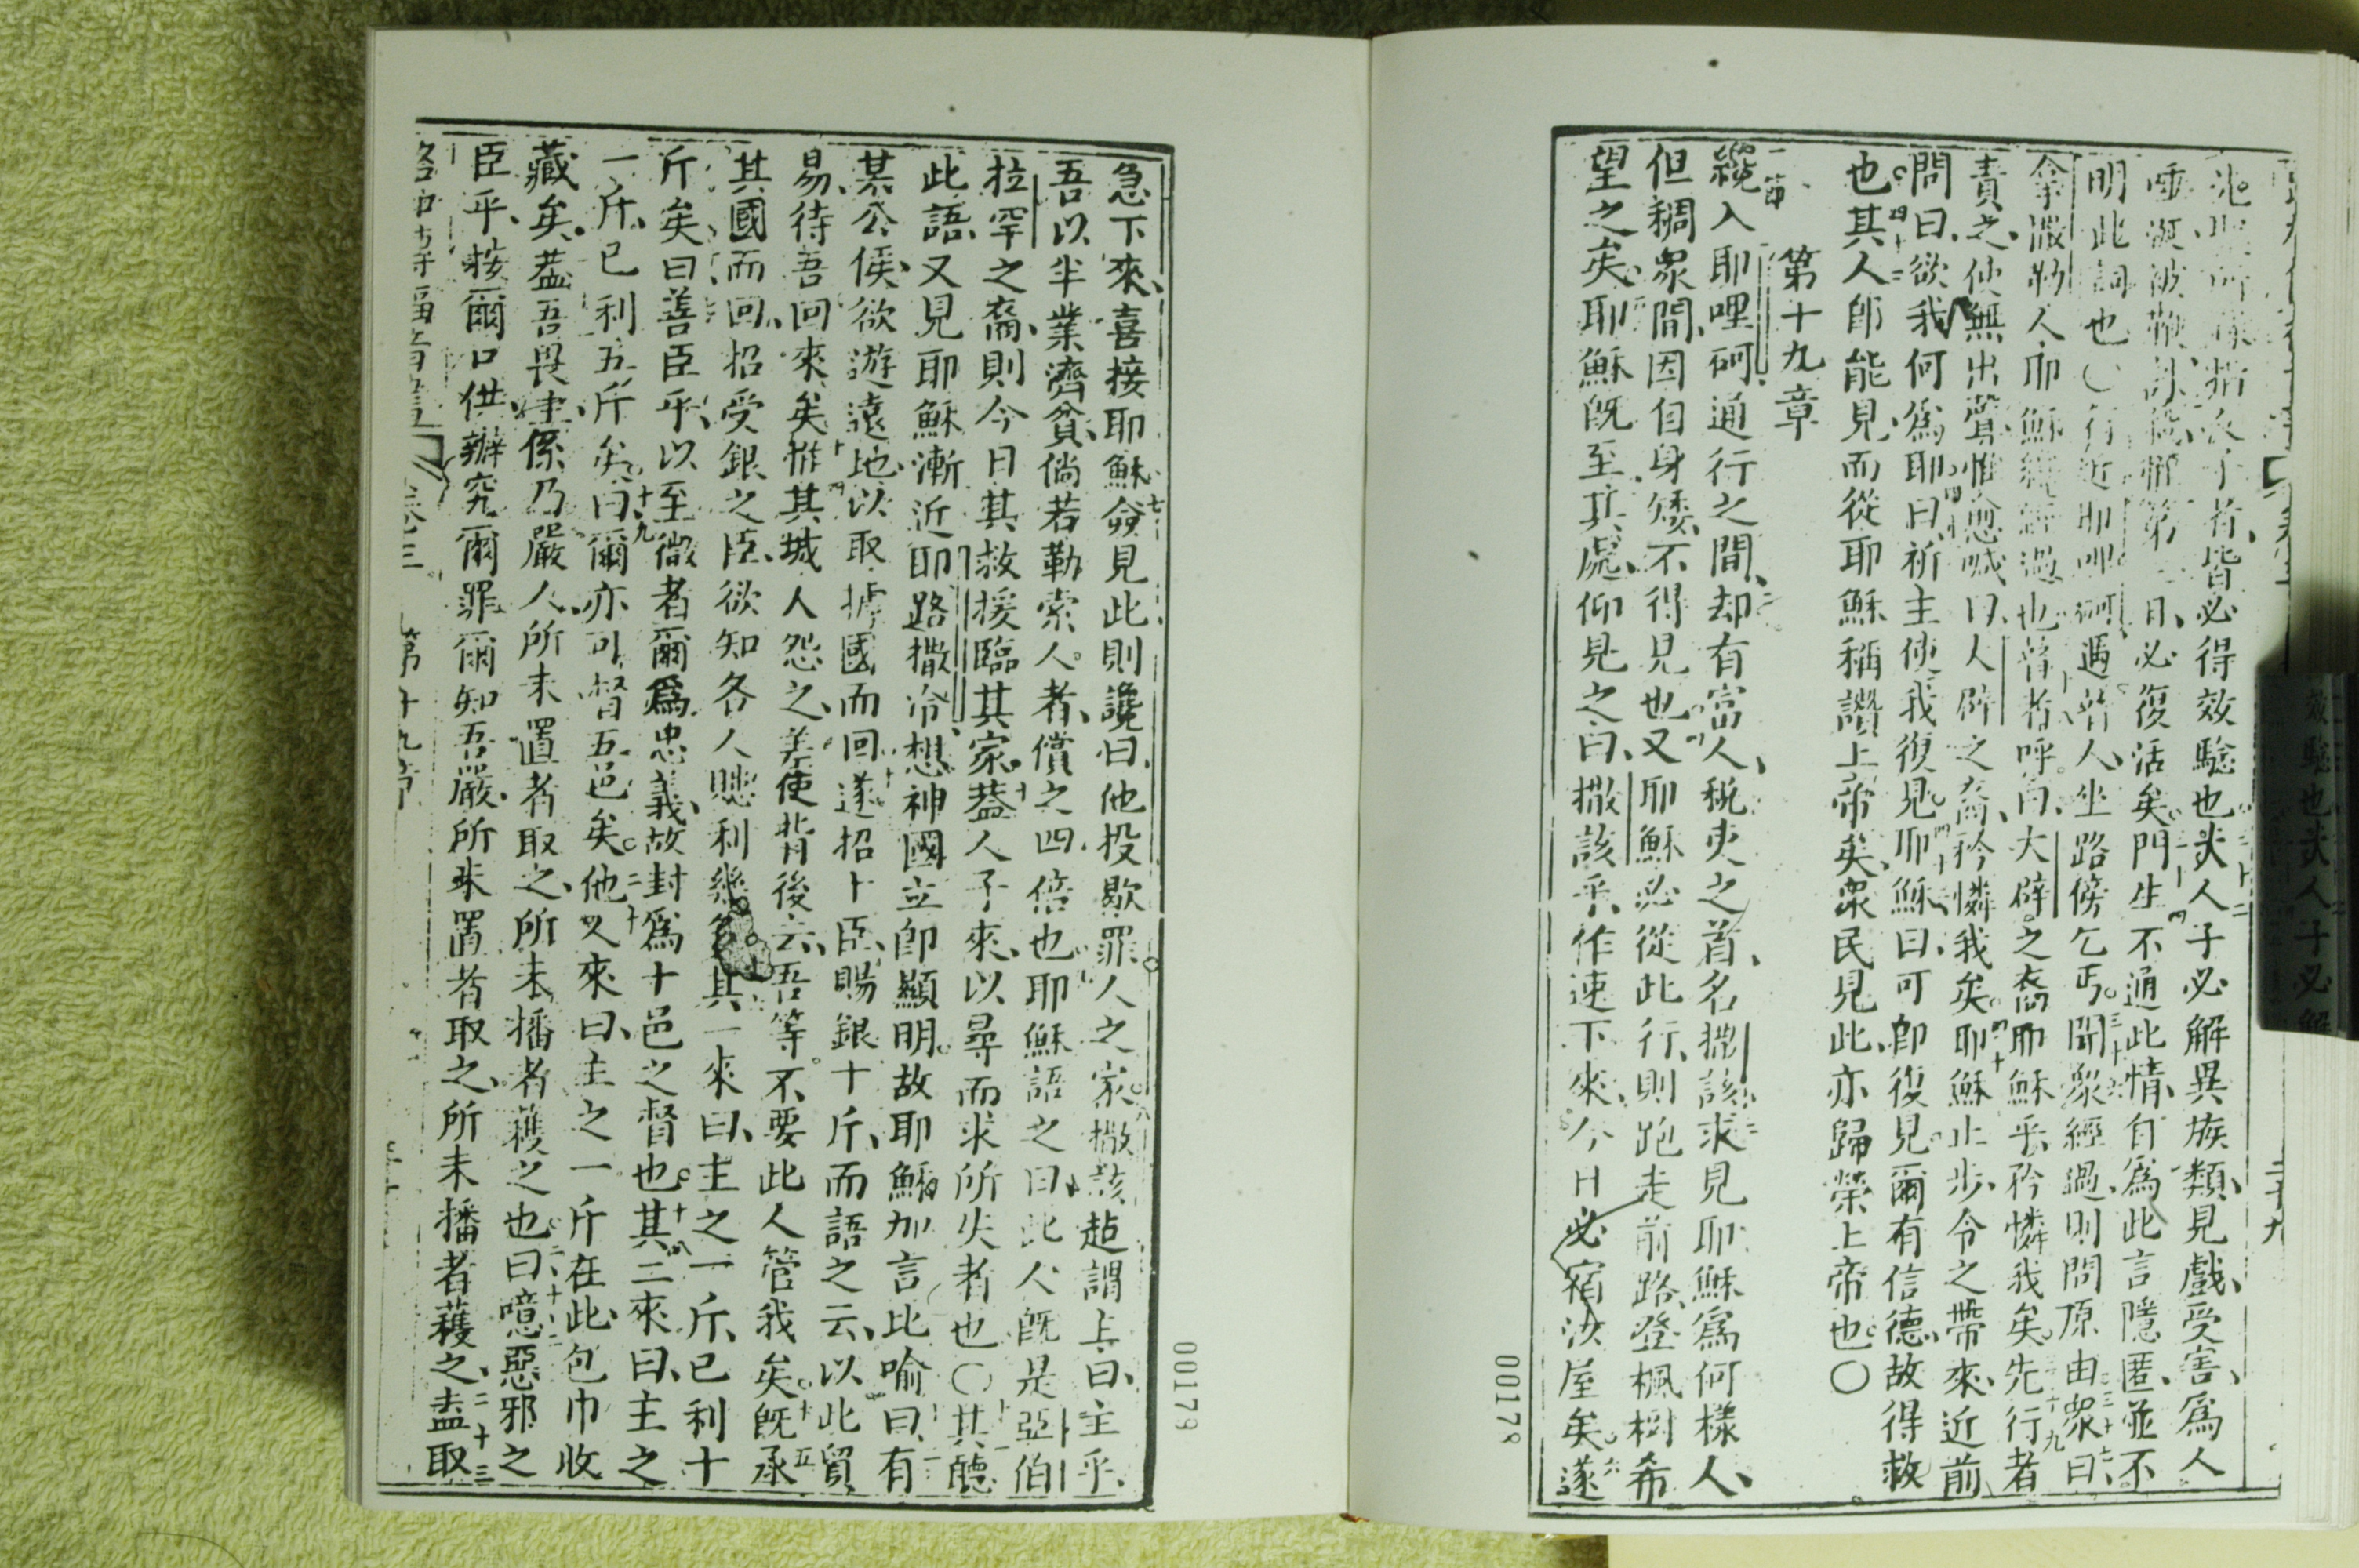 兆聖所錄指人子者、皆必得效驗也、蓋人子必解異族類、見戲、受害、爲人
唾涎、被鞭、訃殺、惟第三日、必復活矣。門生不通此情、自爲此言隱匿、並不
明此詞也〇行近耶哩㖿、遇瞽人、坐路傍乞丐。聞衆經過、則問原由。衆曰、
拿㴰勒人耶穌纔經過也。瞽者呼曰、大辟之裔耶穌乎、矜憐我矣。先行者
責之、使無出聲、惟愈喊曰、大辟之裔、矜憐我矣。耶穌止步、令之帶來、近前
問曰、欲我何爲耶。曰、祈主使我復見。耶穌曰、可卽復見、爾有信德、故得救
也。其人卽能見、而從耶穌、稱讚上帝矣、衆民見此、亦歸榮上帝也〇
第十九章
一節
纔入耶哩㖿、通行之間、却有富人、稅吏之首、名撒該、求見耶穌爲何樣人、
但稠衆間、因自身矮、不得見也。又耶穌必從此行、則跑走前路、登楓樹希
望之矣。耶穌旣至其處、仰見之曰、撒該乎、作速下來、今日必宿汝屋矣。遂
00178
急下來、喜接耶穌。僉見此、則讒曰、他投歇罪人之家。撒該起謂上曰、主乎、
吾以半業濟貧、倘若勒索人者、償之四倍也。耶穌語之曰、此人旣是亞伯
拉罕之裔、則今日其救援臨其家、蓋人子來、以尋而求所失者也〇其聽
此語、又見耶穌漸近耶路撒冷、想神國立卽顯明。故耶穌加言比喻曰、有
某公侯、欲遊遠地、以取據國而回、遂招十臣、賜銀十斤、而語之云、以此貿
易、待吾回來矣。惟其城人怨之、差使背後云、吾等不要此人管我矣。旣承
其國而回、招受銀之臣、欲知各人賺利幾多。其一來曰、主之一斤、已利十
斤矣。曰、善臣乎、以至微者爾爲忠義、故封爲十邑之督也。其二來曰、主之
一斤、已利五斤矣。曰、爾亦可督五邑矣。他又來曰、主之一斤在此、包巾收
藏矣。蓋吾畏主、係乃嚴人、所未置者取之、所未播者穫之也。曰、噫惡邪之
臣乎、按爾口供、辦究爾罪、爾知吾嚴、所未置者取之、所未播者穫之、盍取
卷三 第十九章
00179